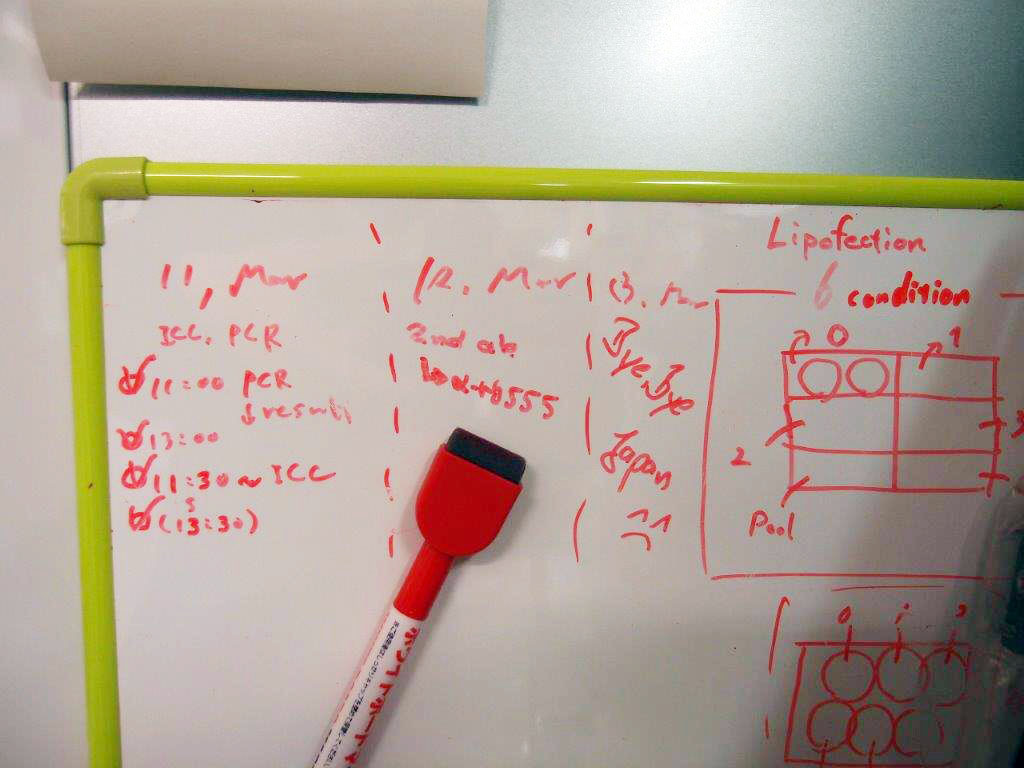 11, Mar
ICC, PCR
11:00 PCR
↓ result
13:00
11:30 ~ ICC
(13:30)
12. Mar
2nd ab
13. Mar
Bye, Bye
Japan
Lipofection
6 condition
0 1
2 3
Pool
0 1